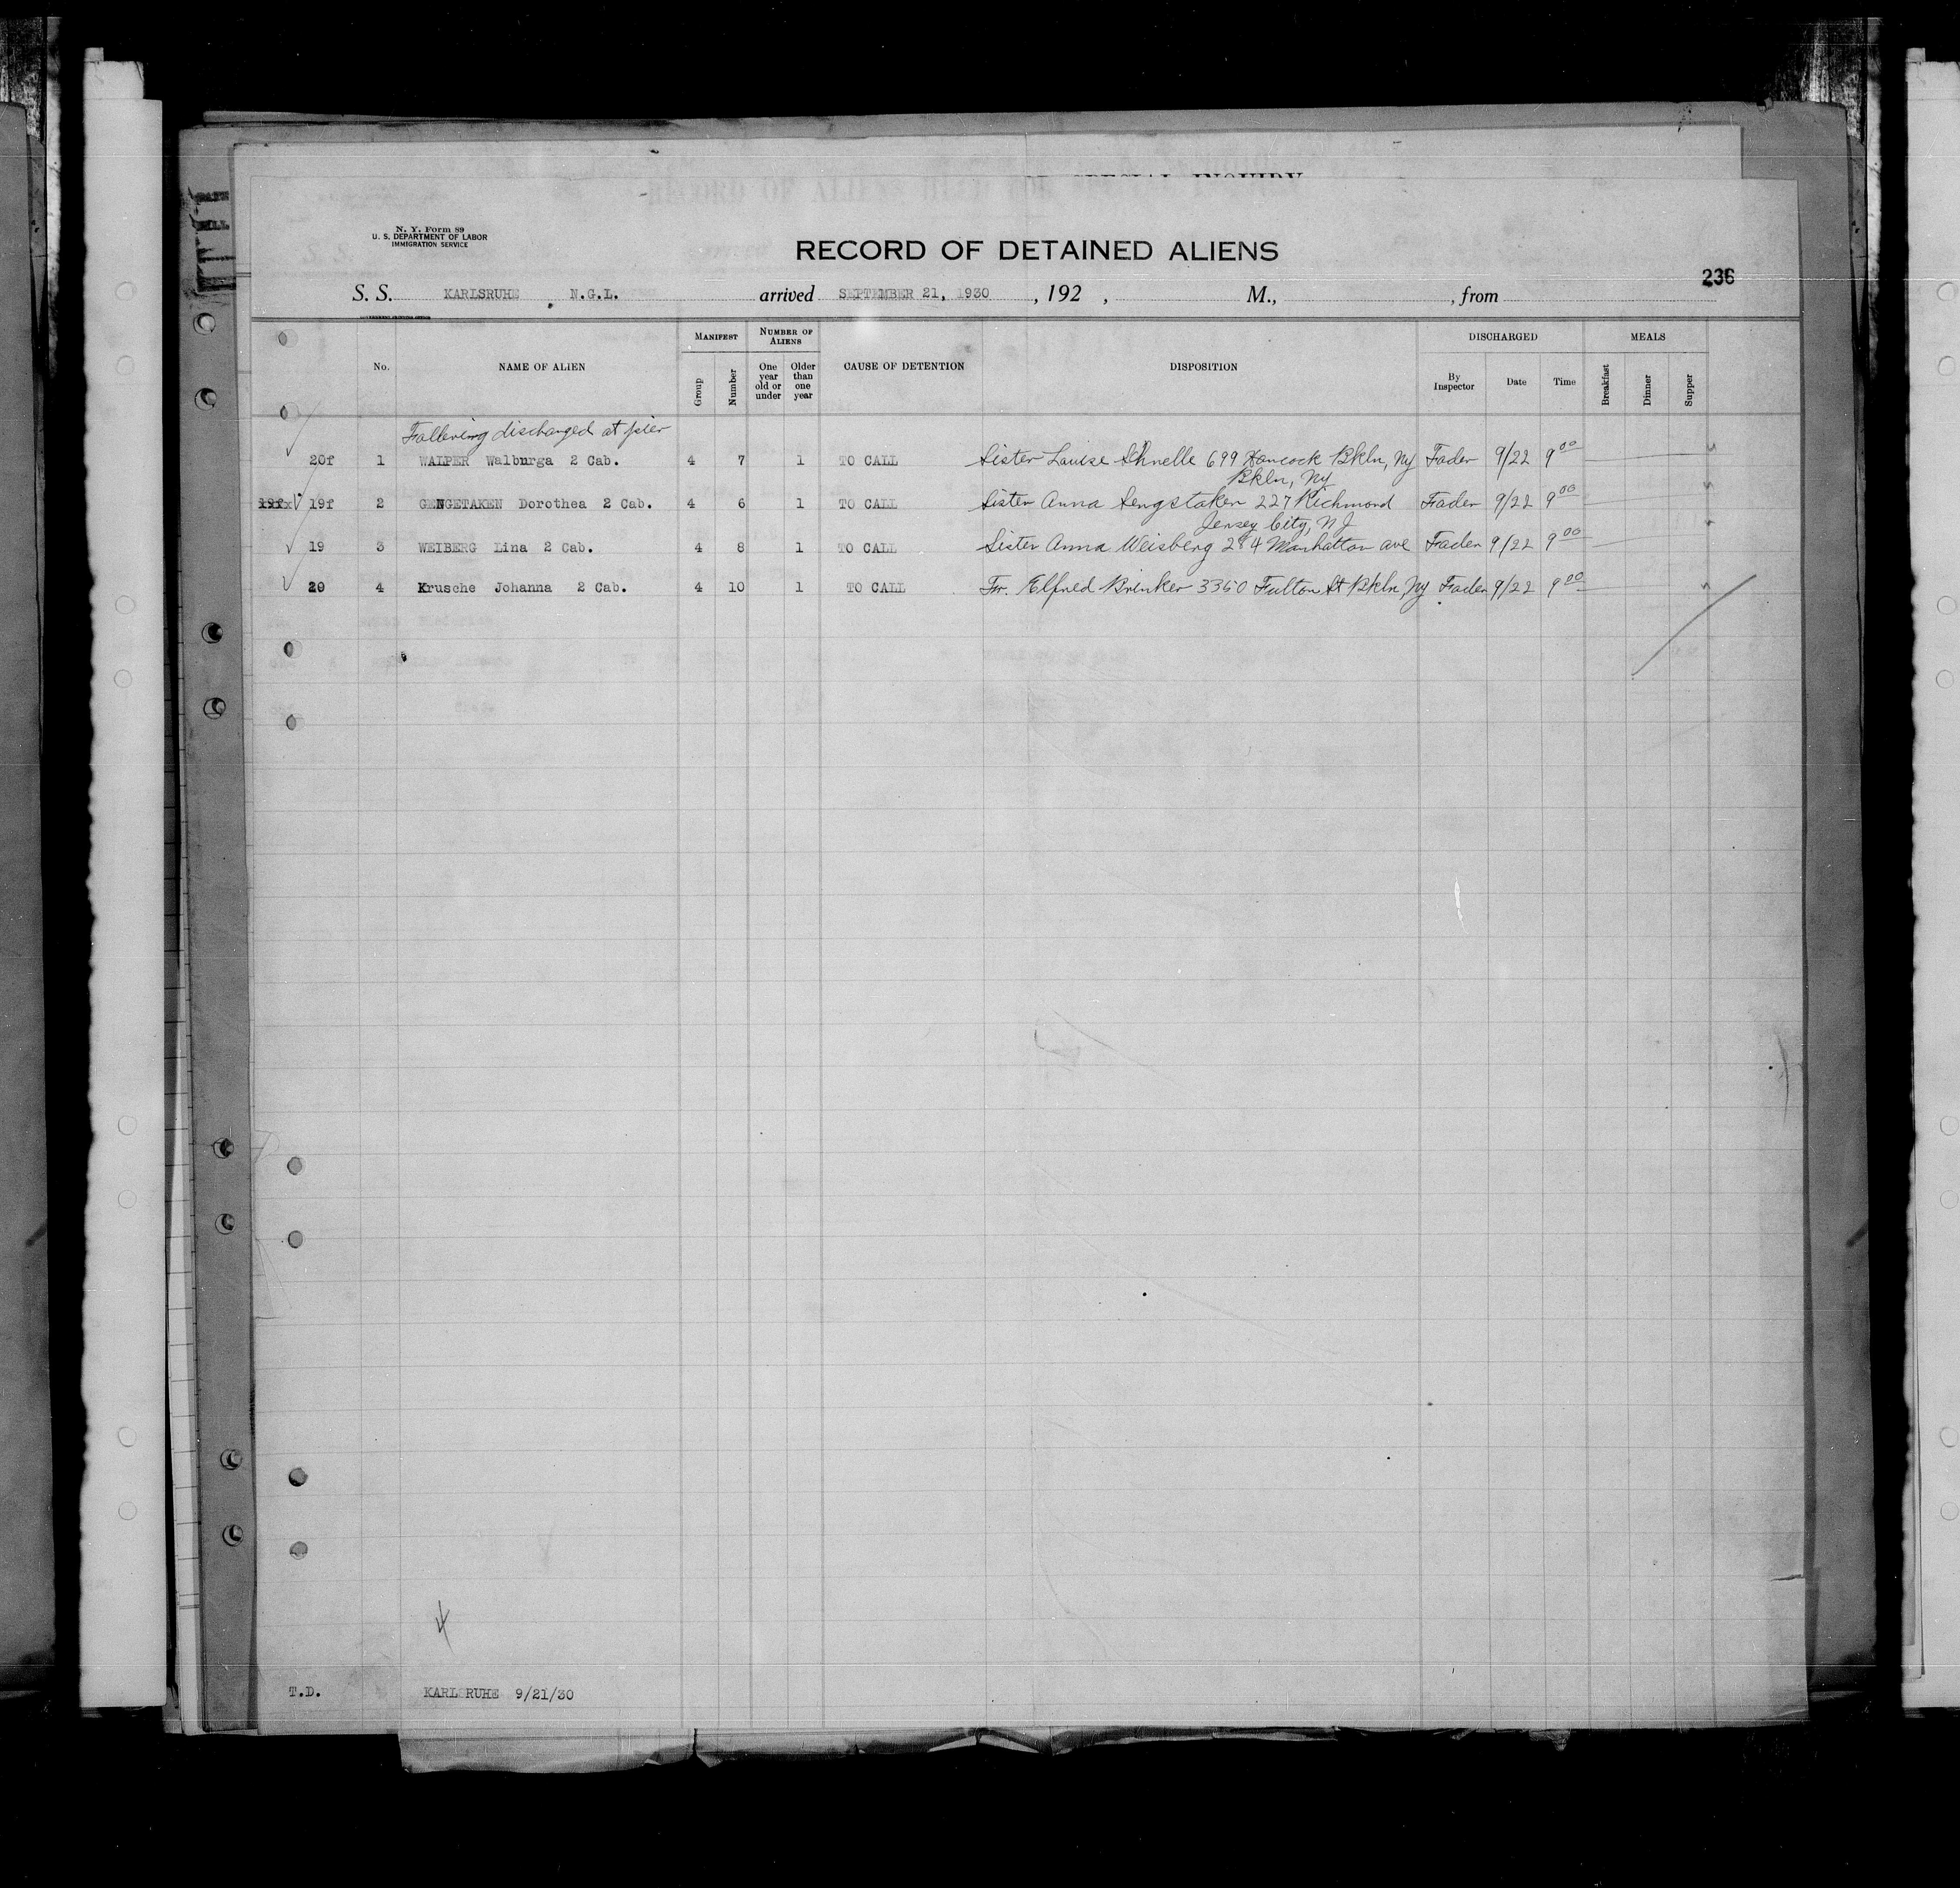 SPECIAL INQUIRY
RECORD OF ALIENS HELD FOR
N. Y. Form 89
U. S. DEPARTMENT OF LABOR
IMMIGRATION SERVICE
RECORD OF DETAINED ALIENS
236
S. S. KARLSRUHE , N.G.L. arrived SEPTEMBER 21, 1930 , 192 , M., , from
GOVERNMENT PRINTING OFFICE
No. NAME OF ALIEN MANIFEST Group Number NUMBER OF ALIENS One year old or under Older than one year CAUSE OF DETENTION DISPOSITION DISCHARGED By Inspector Date Time MEALS Breakfast Dinner Supper
Following discharged at pier
20f 1 WALPER Walburga 2 Cab. 4 7 1 TO CALL Sister Louise Schnelle 699 Hancock Bkln, Ny Fader 9/22 9 00
Bkln, Ny
19fx 19f 2 GENGETAKEN Dorothea 2 Cab. 4 6 1 TO CALL Sister Anna Sengstaken 227 Richmond Fader 9/22 9 00
Jersey City, NJ
19 3 WEIBERG Lina 2 Cab. 4 8 1 TO CALL Sister Anna Weisberg 284 Manhattan ave Fader 9/22 9 00
20 4 Krusche Johanna 2 Cab. 4 10 1 TO CALL Fr. Elfred Brinker 3350 Fulton St Bkln, Ny Fader 9/22 9 00
4
T.D. KARLSRUHE 9/21/30